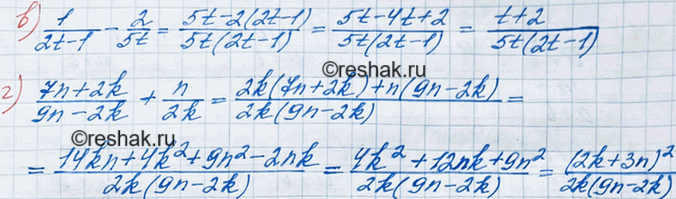 в) 1/(2t-1) - 2/5t = (5t-2(2t-1))/(5t(2t-1)) = (5t-4t+2)/(5t(2t-1)) = (t+2)/(5t(2t-1))
©reshak.ru
г) (7n+2k)/(9n-2k) + n/2k = (2k(7n+2k)+n(9n-2k))/(2k(9n-2k)) =
©reshak.ru
= (14kn+4k²+9n²-2nk)/(2k(9n-2k)) = (4k²+12nk+9n²)/(2k(9n-2k)) = (2k+3n)²/(2k(9n-2k))